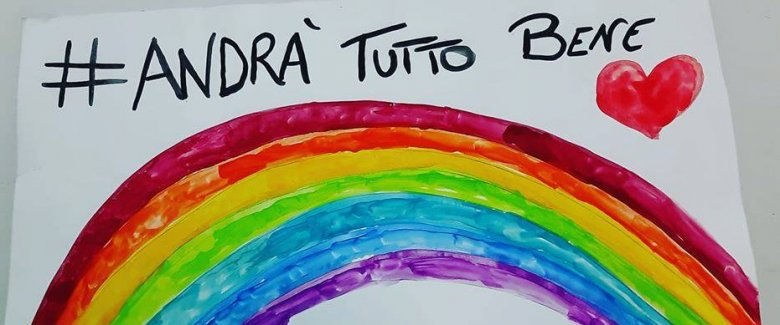 #ANDRÀ TUTTO BENE